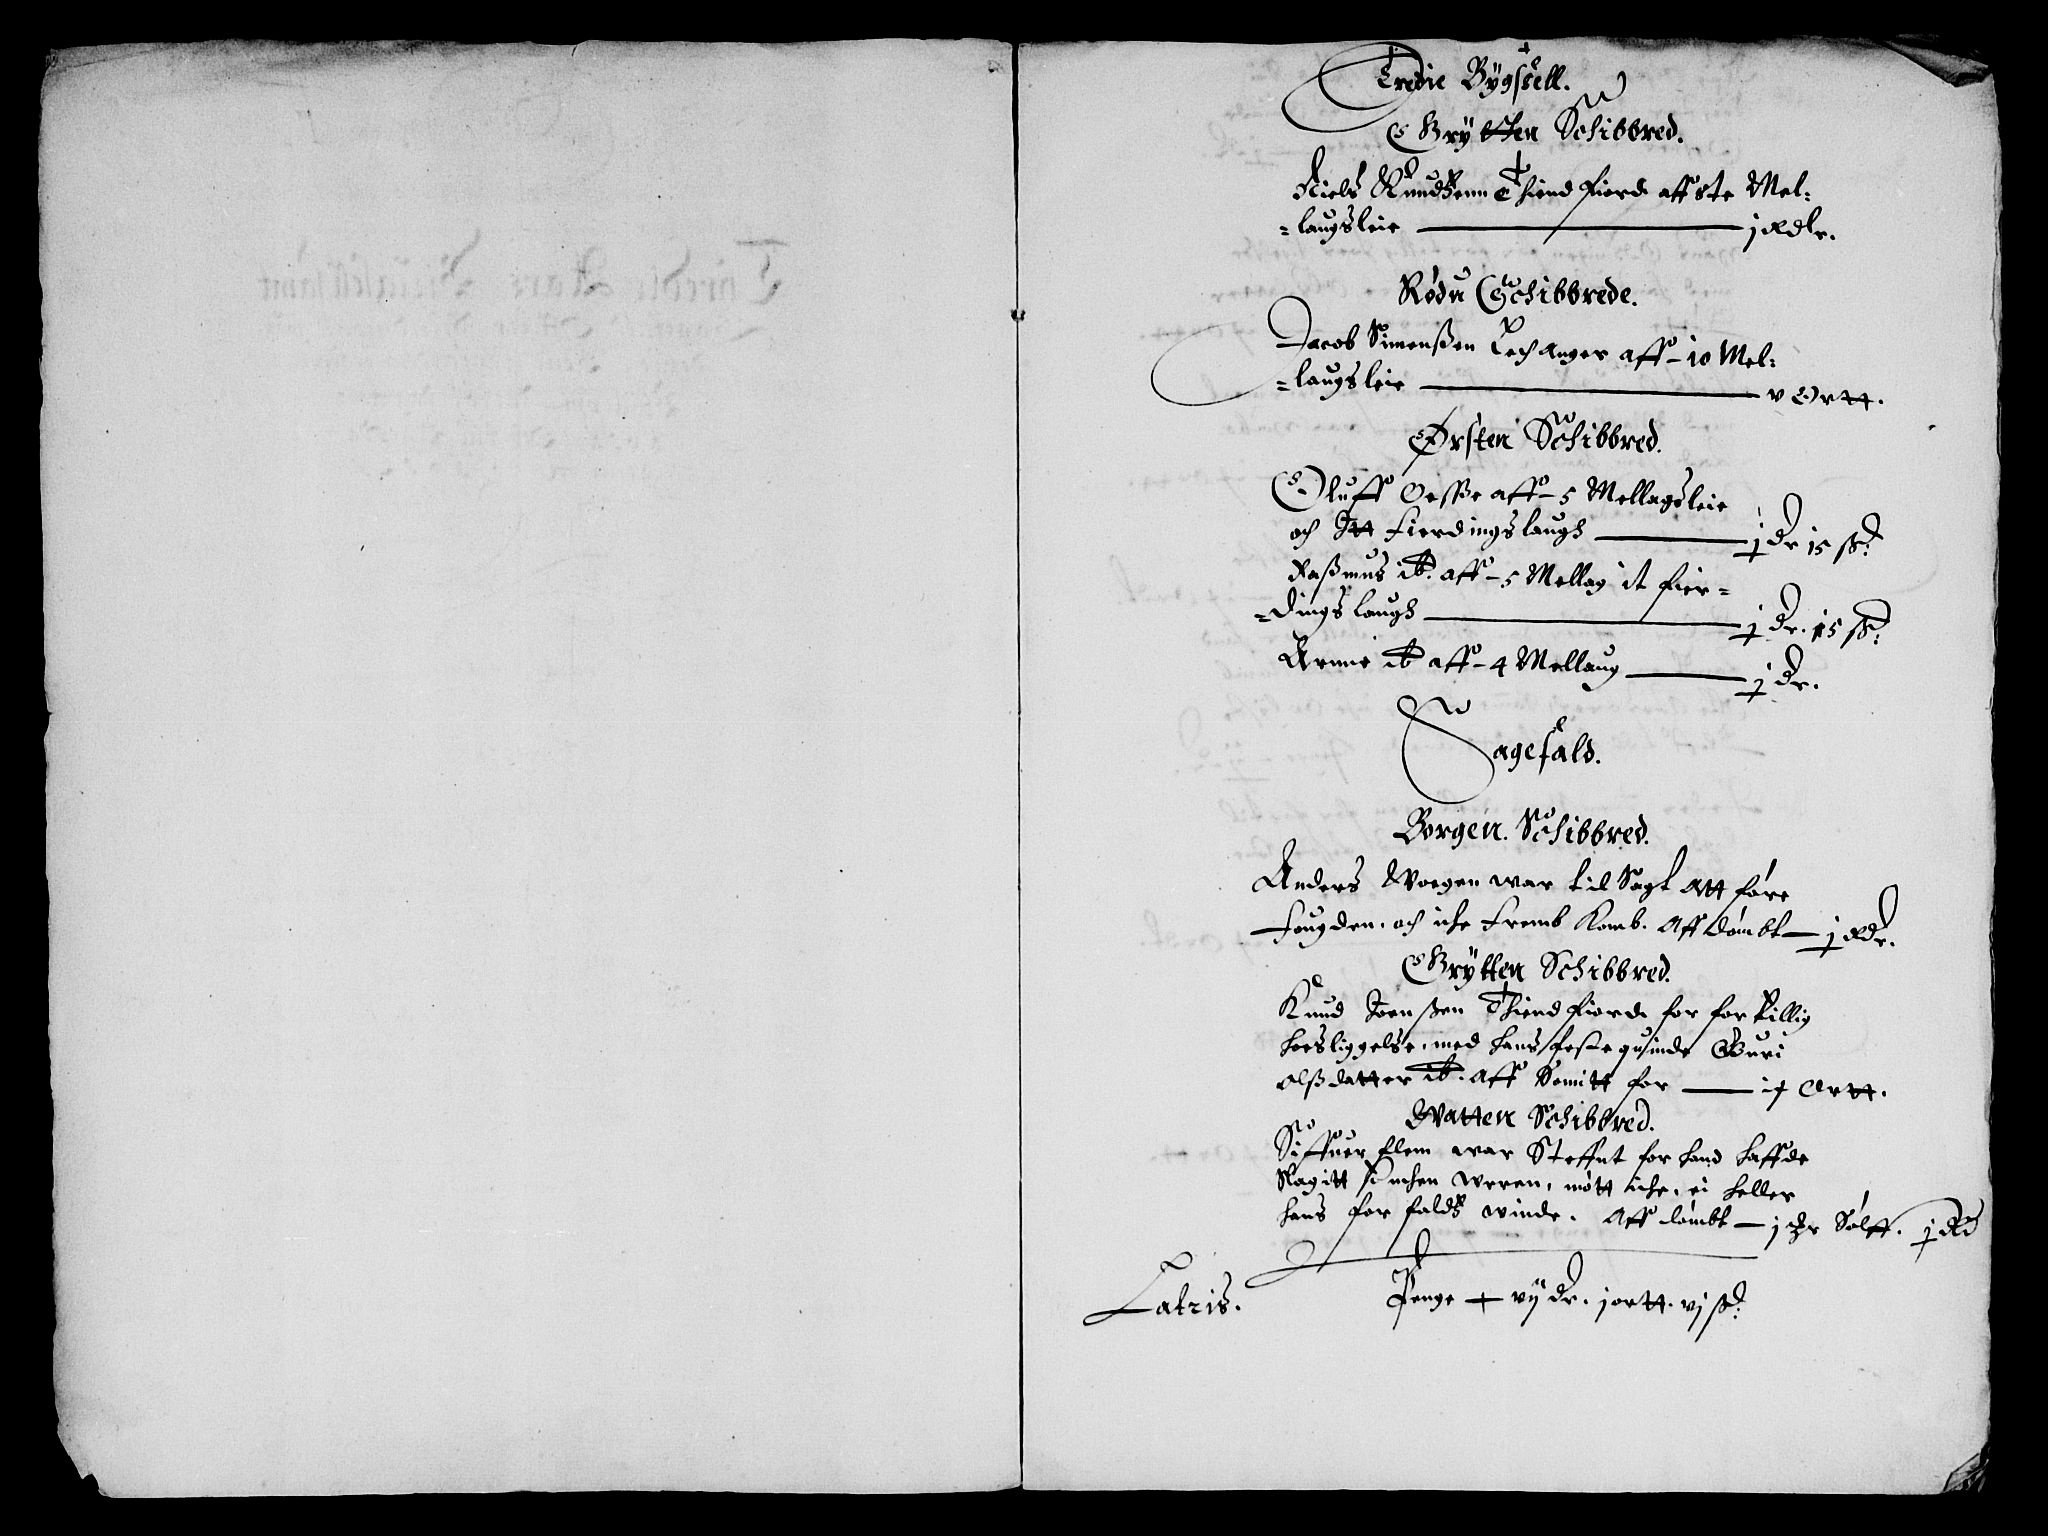 Tredie Bygsell.
Grytten Schibbred.
Niels Knudßenn Thiendfiord aff 8te Mel:
=laugsleie — j Rdlr.
Rødu Schibbrede.
Jacob Simenßen Lechanger aff – 10 Mel:
=laugsleie — v Ortt.
Ørsten Schibbred.
Oluff Oesße aff – 5 Mellagsleie
och Itt Fierdingslaugh — j dr 15 ß:
Raßmus ib. aff – 5 Mellag it fier=
=dingslaugh — j dr. 15 ß:
Arnne ib aff – 4 Mellaug — j dr.
Sagefald.
Borgen. Schibbred.
Anders Woegen war til Sagt Att føre
Fougden. och iche Fremb Komb. Aff dømbt — j Rdr.
Grytten Schibbred.
Knud Joenßen Thiendfiord for for tillig
hoesliggelse, med hans festequinde Guri
Olßdatter ib. Aff Sonitt for — Ortt.
Watten Schibbred.
Siffuer Flem war Steffnt for hand haffde
Slagitt møtt iche, ei heller
hans for faldß winde. Aff dømbt — j Sølff. j Rd
Latris. Penge + vij dr. j ortt. vj ß: